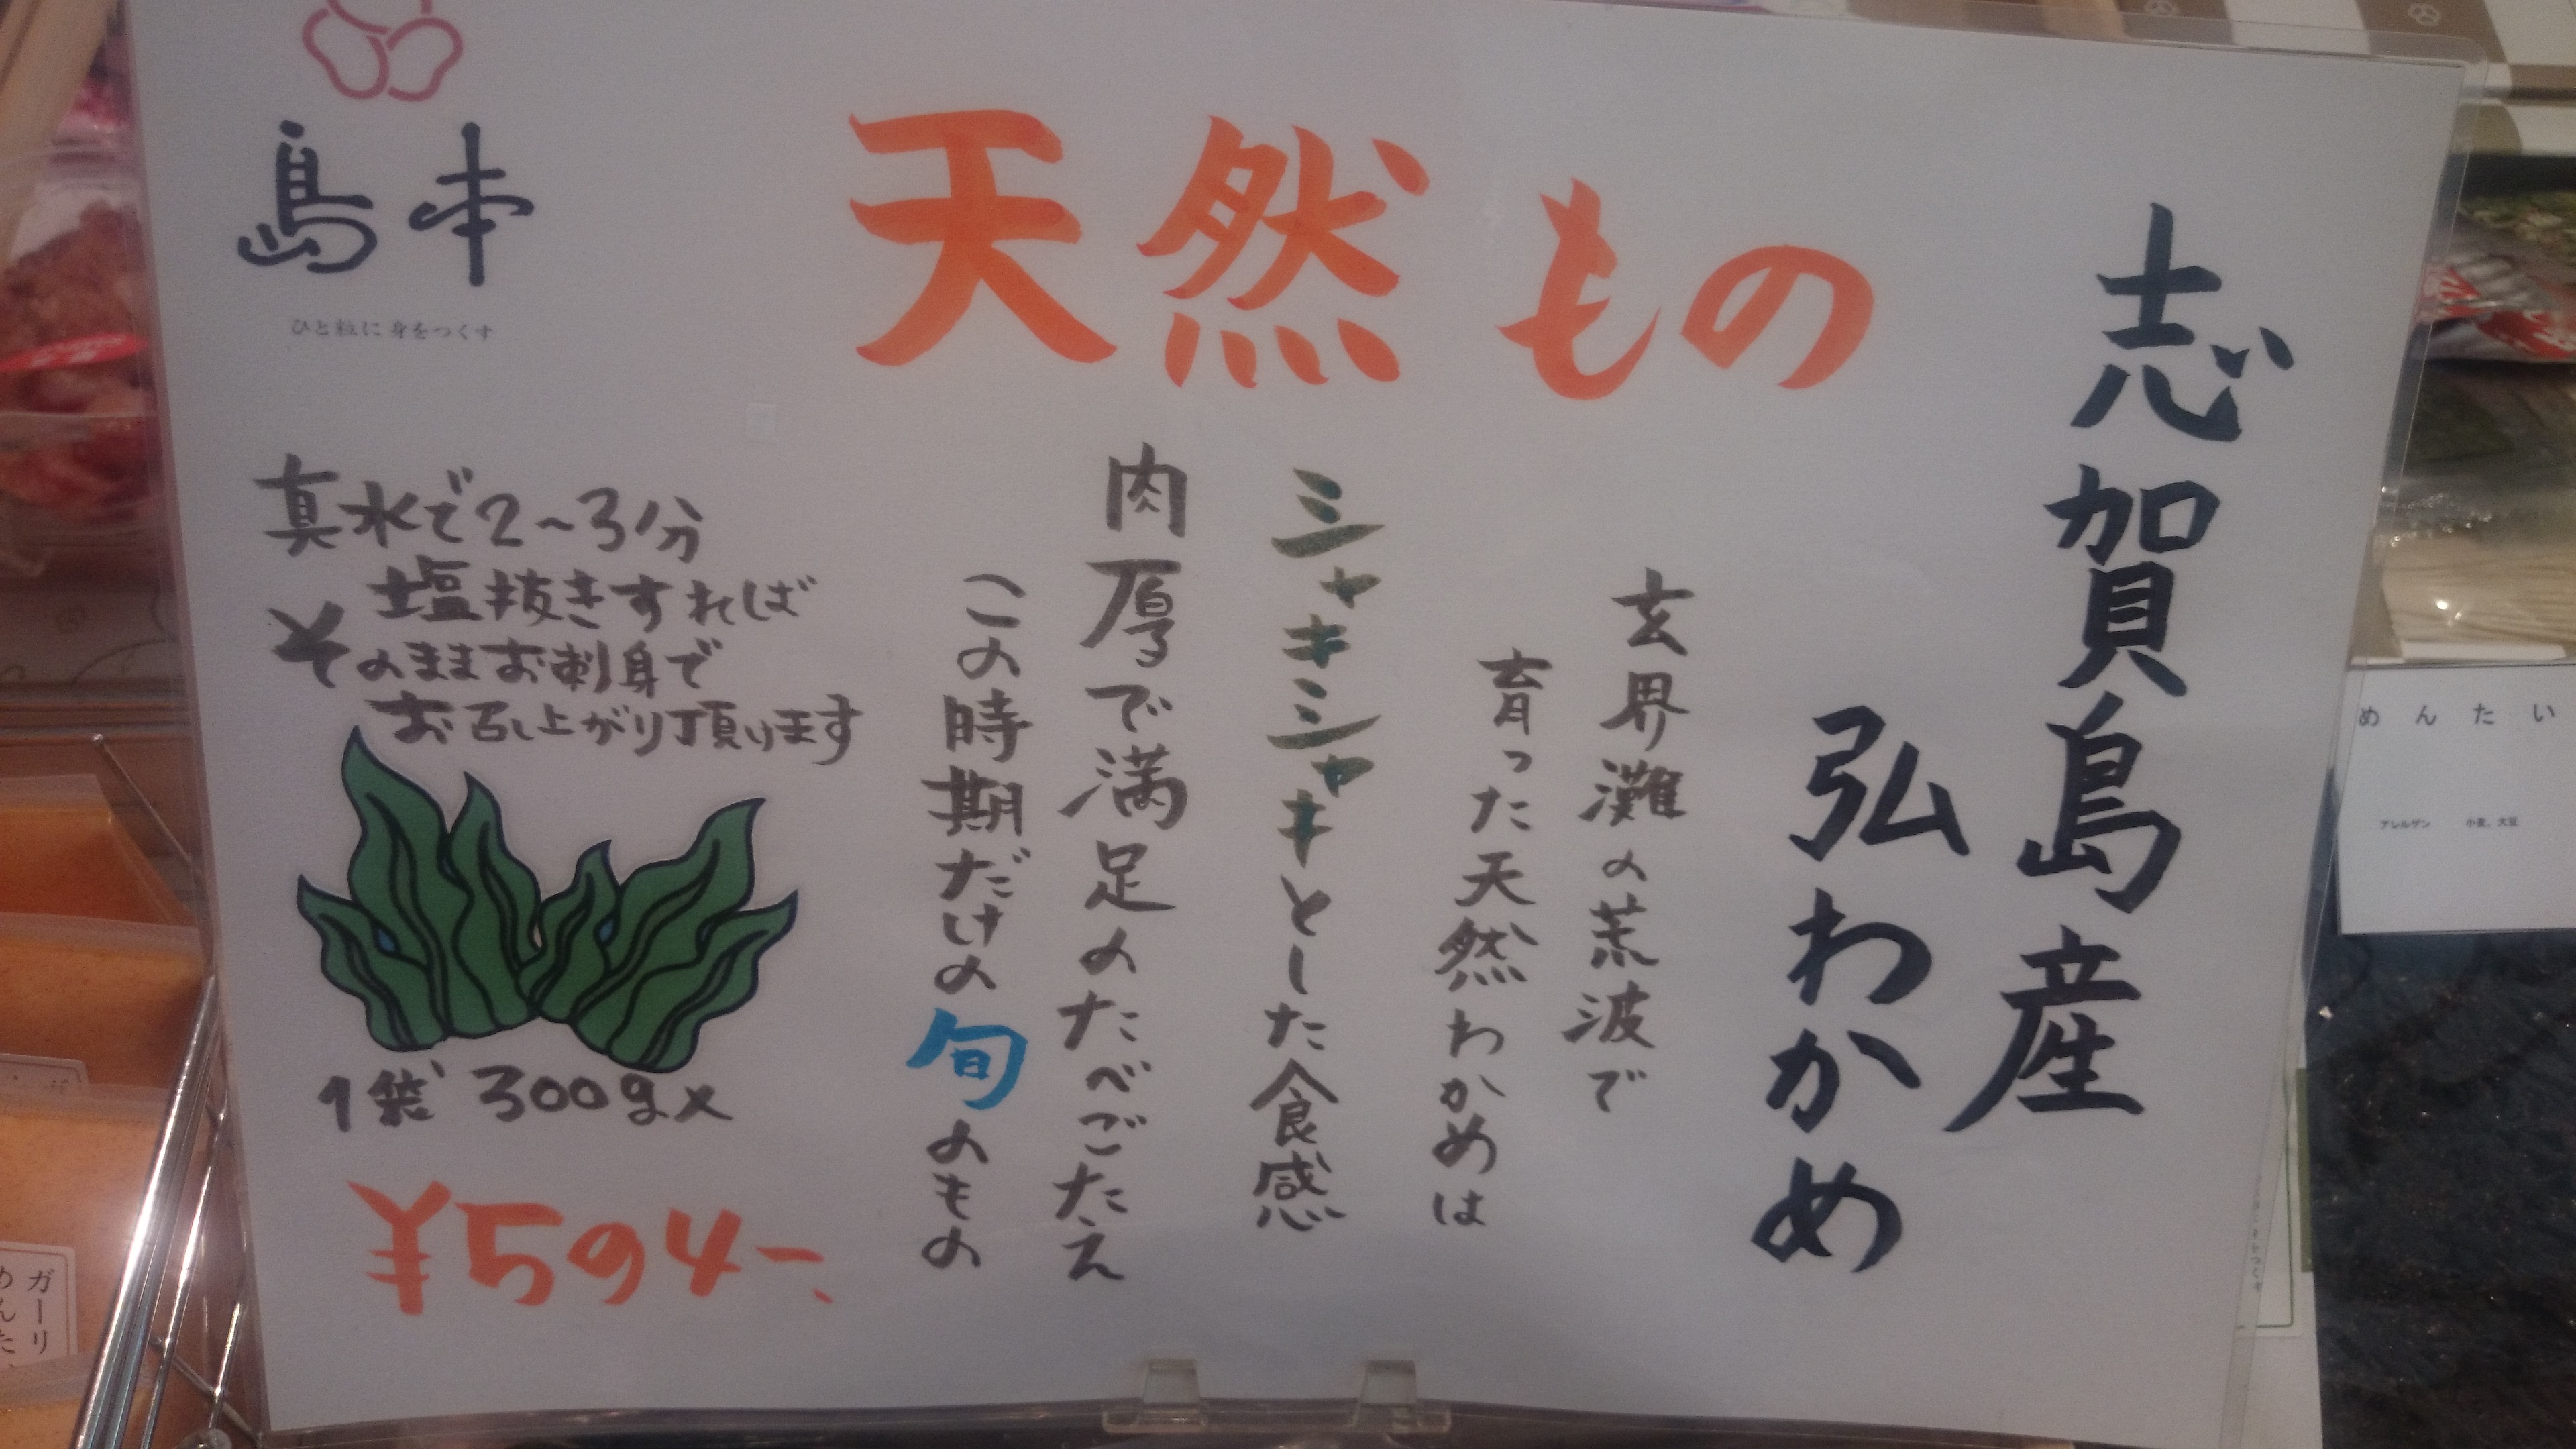 島本
ひと粒に 身をつくす
天然もの
志賀島産
弘わかめ
玄界灘の荒波で
育った天然わかめは
シャキシャキとした食感
肉厚で満足のたべごたえ
この時期だけの旬のもの
真水で2~3分
塩抜きすれば
そのままお刺身で
お召し上がり頂けます
1袋 300g入
¥594-
めんたい
アレルゲン 小麦、大豆
ガーリ
めんた